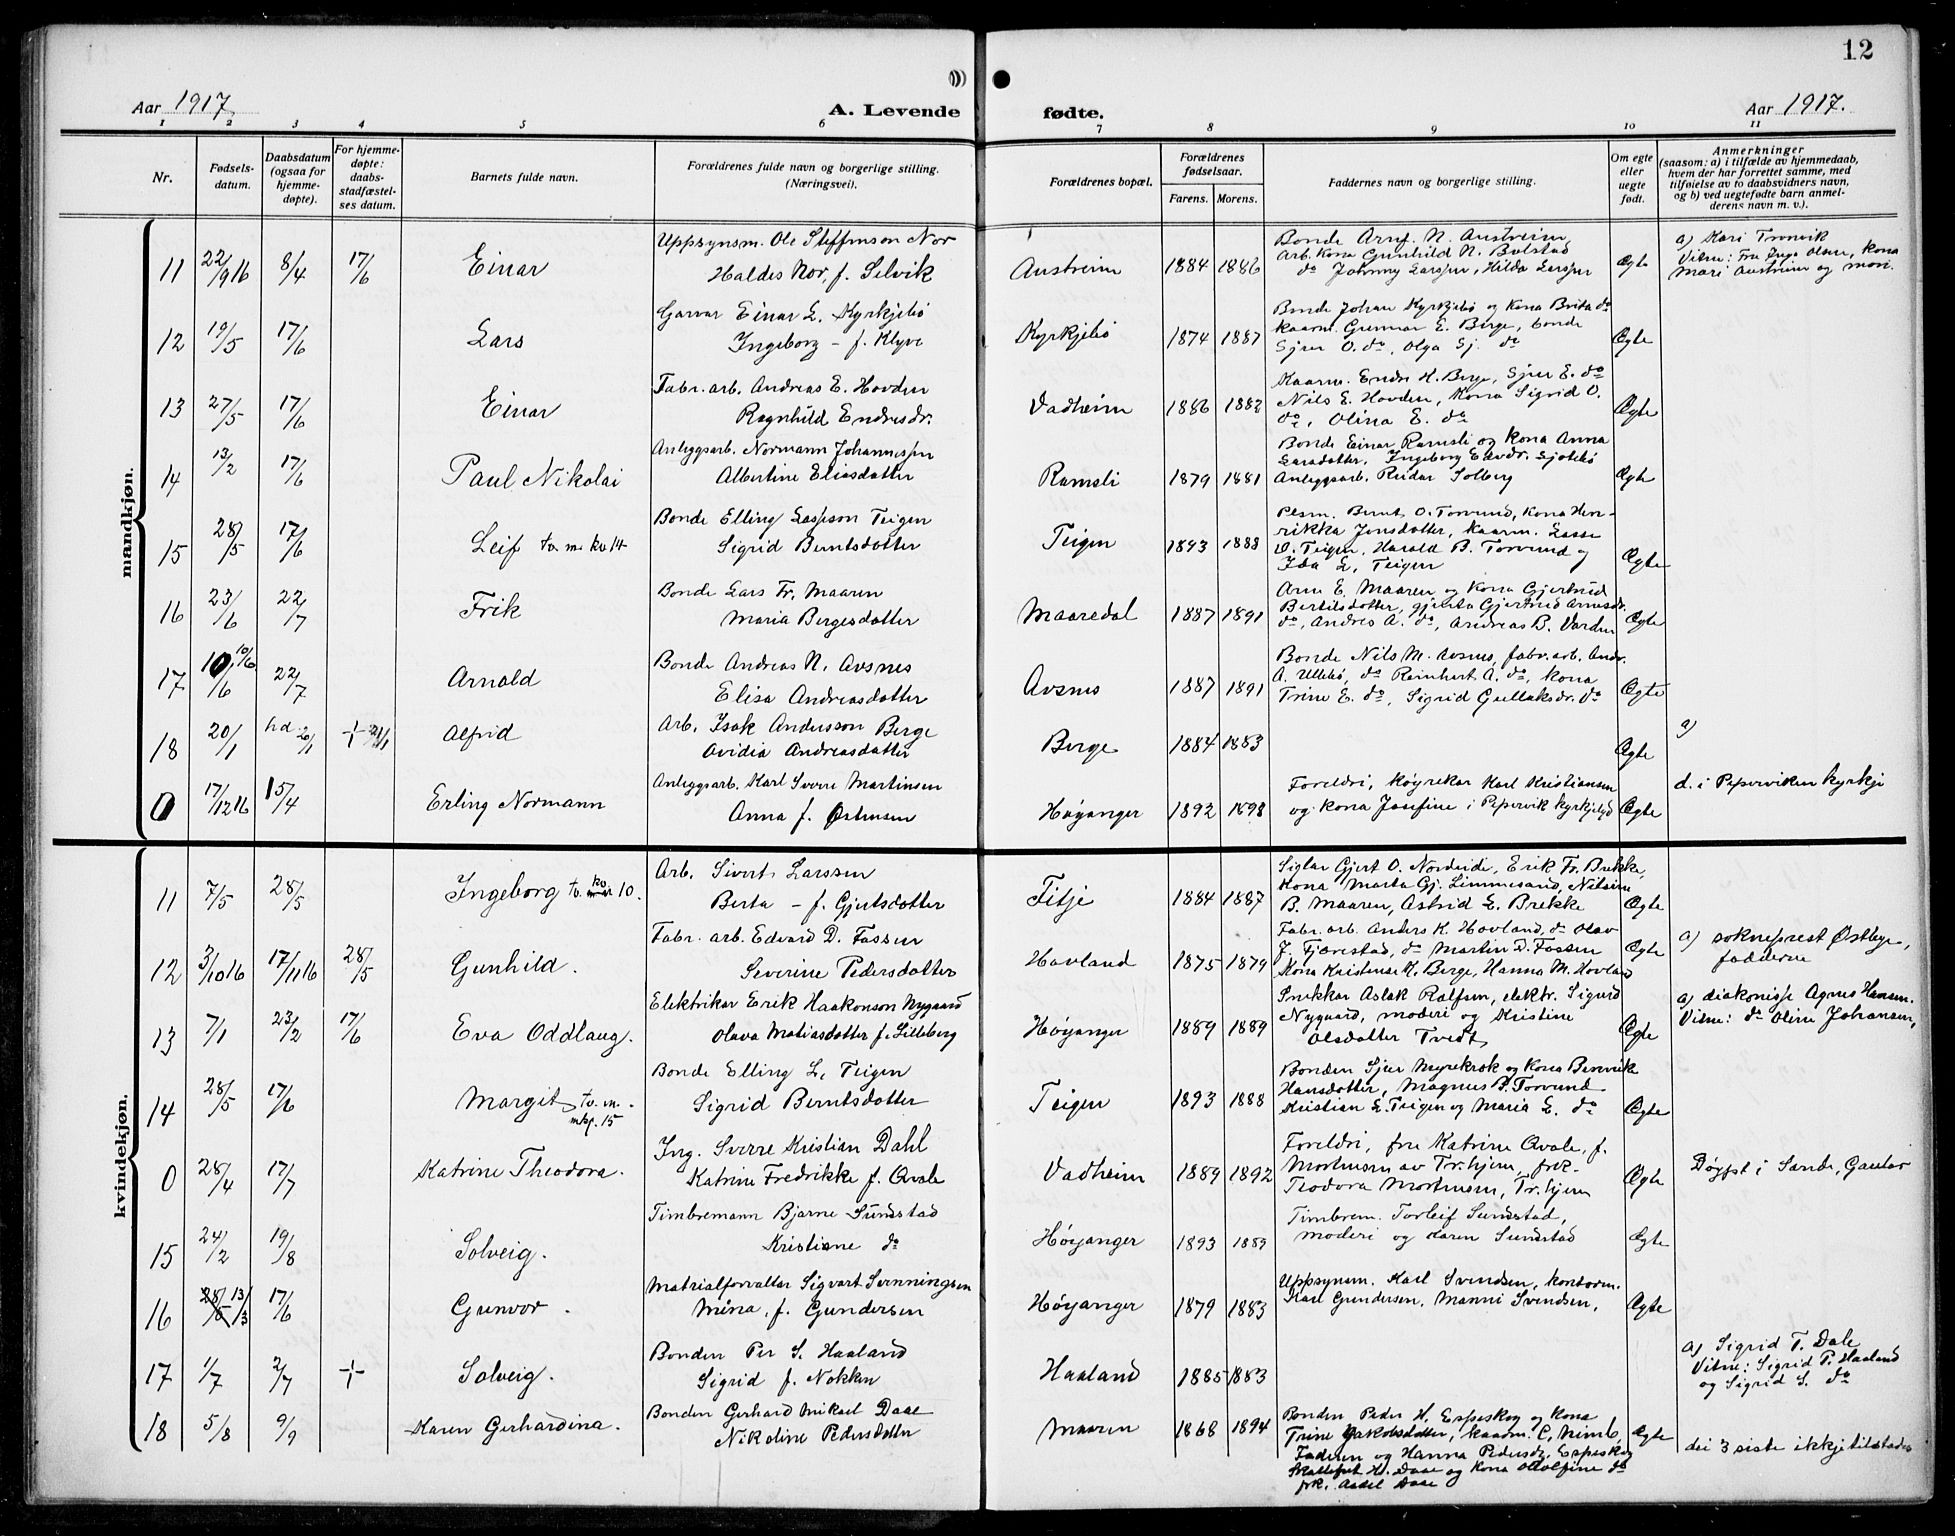 12
Aar 1917 A. Levende fødte. Aar 1917.
1 2 3 4 5 6 7 8 9 10 11
Nr. Fødsels-datum. Daabsdatum (ogsaa for hjemme-døpte). For hjemme-døpte: daabs-stadfæstel-ses datum. Barnets fulde navn. Forældrenes fulde navn og borgerlige stilling. (Næringsvei). Forældrenes bopæl. Forældrenes fødselsaar. Farens. Morens. Faddernes navn og borgerlige stilling. Om egte eller uegte født. Anmerkninger (saasom: a) i tilfælde av hjemmedaab, hvem der har forrettet samme, med tilføielse av to daabsvidners navn, og b) ved uegtefødte barn anmel-derens navn m. v.).
mandkjøn.
11 22/9 16 8/4 17/6 Einar Uppsynsm. Ole Steffenson Nor
Haldis Nor, f. Selvik Austreim 1884 1886 Bonde Arnf. N. Austreim
Arb. Kona Gunhild N. Bolstad
do Johnny Larssen, Hilda Larssen Egte a) Kari Tronvik
Vitne: Fru Inga Olsen, kona
Mari Austreim og mori.
12 19/5 17/6 Lars Garvar Einar L. Kyrkjebö
Ingeborg – f. Klyve Kyrkjebö 1874 1887 Bonde Johan Kyrkjebö og Kona Brita do
kaarm. Gunnar E. Berge, bonde
Sjur O. do, Olga Sj. do Egte
13 27/5 17/6 Einar Fabr. arb. Andreas E. Hovden
Ragnhild Endresdr. Vadheim 1886 1882 Kaarm. Endre H. Berge, Sjur E. do
Nils E. Hovden, Kona Sigrid O.
do, Olina E. do Egte
14 13/2 17/6 Paul Nikolai Anleggsarb. Normann Johannessen
Albertine Eliasdatter Ramsli 1879 1881 Bonde Einar Ramsli og Kona Anna
Larsdotter, Ingeborg Edvdr.
Anleggsarb. Reidar Solberg Egte
15 28/5 17/6 Leif tv. m. kv 14 Bonde Elling Lasseson Teigen
Sigrid Berntsdotter Teigen 1893 1888 Plsm. Bernt O. Torvund, Kona Hen-
rikka Jensdotter, kaarm. Lasse
O. Teigen, Harald B. Torvund og
Ida L. Teigen Egte
16 23/6 22/7 Frik Bonde Lars Fr. Maaren
Maria Bergesdotter Maaredal 1887 1891 Arne E. Maaren og Kona Gjertrud
Bertilsdotter, gjenta Gjertrud Arnesdr.
do, Andres A. do, Andreas B. Varden Egte
17 10/6 22/7 Arnold Bonde Andreas N. Avsnes
Elisa Andreasdotter Avsnes 1887 1891 Bonde Nils M. Avsnes, fabr. arb. Andr.
A. Ullebö, do Reinhart A. do, kona
Trine E. do, Sigrid Gullaksdr. do Egte
18 20/1 hd 20/1 + 21/1 Alfrid Arb. Isak Andersson Berge
Ovidia Andreasdotter Berge 1884 1883 Egte a)
0 17/12 16 15/4 Erling Normann Anleggsarb. Karl Sverre Martinsen
Anna f. Østensen Höyanger 1892 1898 Foreldri, köyrekar Karl Kristiansen
og kona Josefine i Pepervik kyrkjelyd Egte d. i Piperviken kyrkje
kvindekjøn.
11 7/5 28/5 Ingeborg tv. kv 10. Arb. Sivert Larssen
Berta – f. Gjertsdotter Fitje 1884 1887 Siglar Gjert O. Nordeide, Erik Fr. Brekke,
Kona Marta Gj. Limmesand, Nilsine
B. Maaren, Astrid L. Brekke Egte
12 3/10 16 17/11 16 28/5 Gunhild. Fabr. arb. Edvard D. Fossen
Severine Pedersdotter Hovland 1875 1879 Fabr. arb. Anders K. Hovland, do Olav
J. Fjærestad, do Martin D. Fossen
Kona Kristense K. Berge, Hanna M. Hovland Egte a) sokneprest Østbye,
fadderne
13 7/1 23/2 17/6 Eva Oddlaug. Elektrikar Erik Haakonson Nygaard
Olava Matiasdotter f. Lilleberg Höyanger 1889 1889 Snekkar Aslak Rolfsen, elektr. Sigurd
Nygaard, moderi og Kristine
Olsdotter Tvedt Egte a) diakonisse Agnes Hansen.
Vitne: do Oline Johansen,
14 28/5 17/6 Margit tv. m. mkj. 15 Bonde Elling L. Teigen
Sigrid Berntsdotter Teigen 1893 1888 Bonden Sjur Myrekrok og Kona Benvik
Hansdotter, Magnus B. Torvund
Kristian L. Teigen og Maria L. do Egte
0 28/4 17/7 Katrine Theodora. Ing. Sverre Kristian Dahl
Katrine Fredrikke f. Qvale Vadheim 1889 1892 Foreldri, frue Katrine Qvale, f.
Mortensen av Tr.hjem, frk.
Teodora Mortensen, Tr. hjem Egte Döypt i Sande, Gaular
15 24/2 19/8 Solveig. Timbremann Bjarne Sundstad
Kristiane do Höyanger 1893 1889 Timbrem. Torleif Sundstad,
moderi og Karen Sundstad Egte
16 28/6 13/3 17/6 Gunvor. Matrialforvaltar Sigvart Svenningsen
Mina, f. Gundersen Höyanger 1879 1883 Uppsynsm. Karl Svendsen, kontorm.
Karl Gundersen, Manni Svendsen, Egte
17 1/7 2/7 + Solveig. Bonden Per S. Haaland
Sigrid f. Nokken Haaland 1885 1883 a) Sigrid T. Dale
Vitne: Sigrid P. Haaland
og Sigrid S. do
18 5/8 9/9 Karen Gerhardina. Bonden Gerhard Mikael Daae
Nikoline Pedersdotter Maaren 1868 1894 Bonden Peder H. Espeskog og kona
Trine Jakobsdotter, kaarm. C. Nimb,
Faderen og Hanna Pedersdr. Espeskog
H. Daae og kona Adolfine do
frk. Aadel Daae Egte dei 3 siste ikkje tilstades